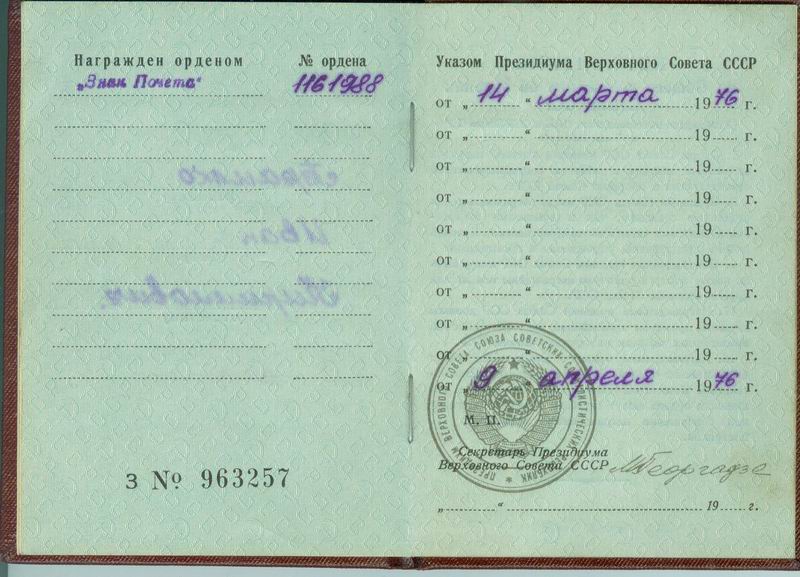 Награжден орденом № ордена
„Знак Почета“ 1161988
З № 963257
Указом Президиума Верховного Совета СССР
от „ 14 “ марта 1976 г.
от „ “ 19 г.
от „ “ 19 г.
от „ “ 19 г.
от „ “ 19 г.
от „ “ 19 г.
от „ “ 19 г.
от „ “ 19 г.
от „ “ 19 г.
от „ 9 “ апреля 1976 г.
М. П.
Секретарь Президиума
Верховного Совета СССР МГеоргадзе
„ “ 19 г.
ПРЕЗИДИУМ ВЕРХОВНОГО СОВЕТА СОЮЗА СОВЕТСКИХ СОЦИАЛИСТИЧЕСКИХ РЕСПУБЛИК